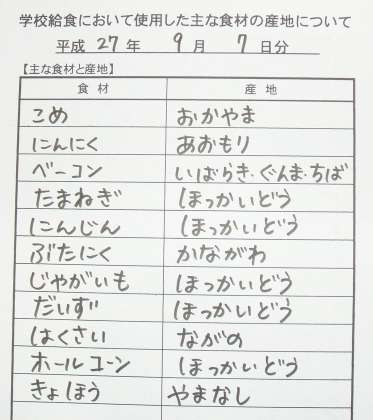 学校給食において使用した主な食材の産地について
平成 27 年 9 月 7 日分
【主な食材と産地】
食材 産地
こめ おかやま
にんにく あおもり
ベーコン いばらき・ぐんま・ちば
たまねぎ ほっかいどう
にんじん ほっかいどう
ぶたにく かながわ
じゃがいも ほっかいどう
だいず ほっかいどう
はくさい ながの
ホールコーン ほっかいどう
きょほう やまなし